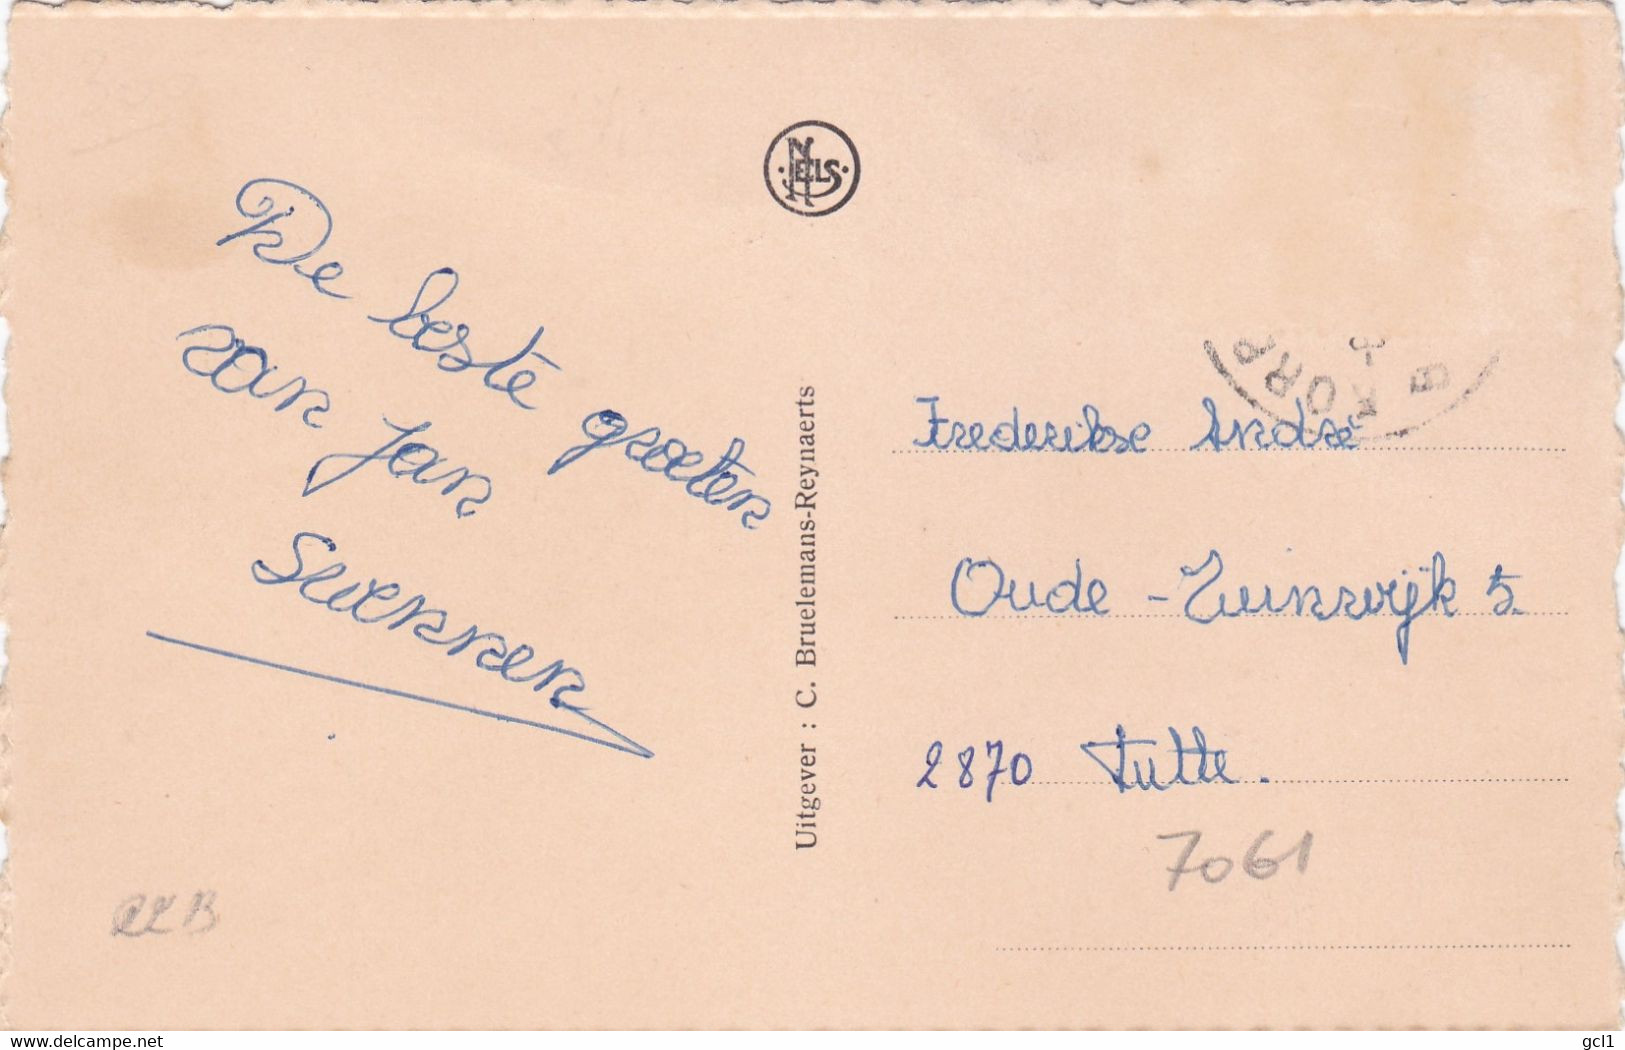 De beste groeten
van Jan
Swennen
NELS
Uitgever : C. Bruelemans-Reynaerts
KORP
Frederikse André
Oude - Tuinswijk 5
2870 Putte.
7061
www.delcampe.net
gcl1